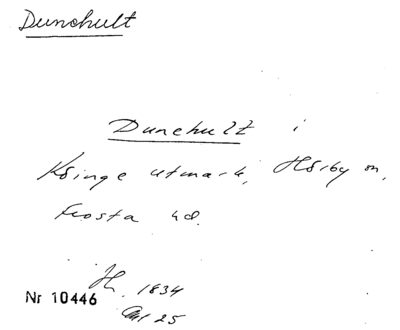 Dunchult
Dunchult i
Käinge utmark, Hörby sn,
Frosta hd.
1834
Nr 10446
25